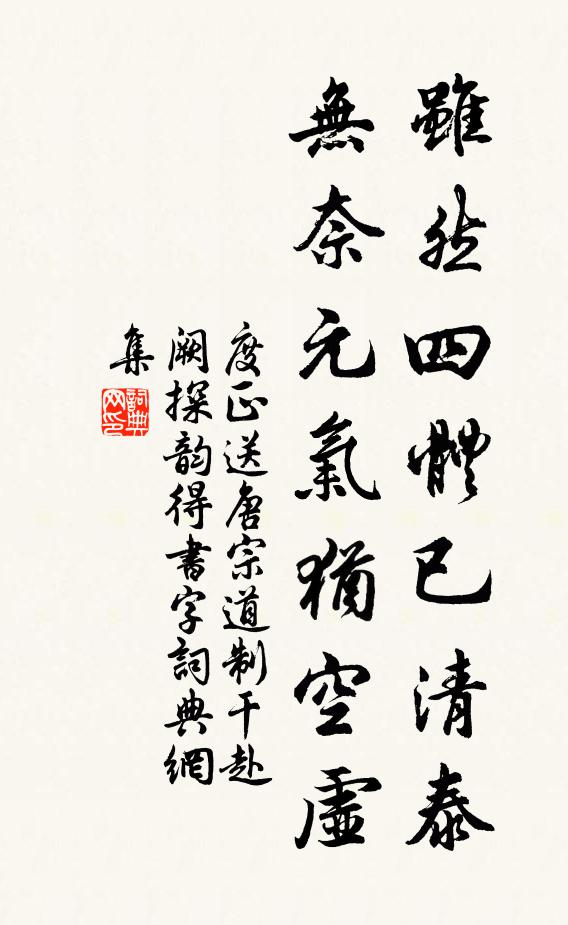 雖然四體已清泰
無奈元氣猶空虛
度正送唐宗道制干赴
闕探韵得書字詞典網
集
詞典
网印